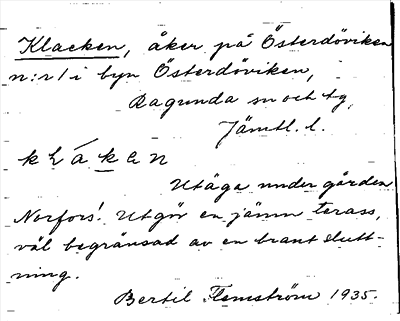 Klacken, åker på Österdöviken
n:r 1 i byn Österdöviken,
Ragunda sn och tg
Jämtl. l.
kḷákɐn
Utäga under gården
Norfors! Utgör en jämn terass,
väl begränsad av en brant slutt-
ning.
Bertil Flemström 1935.